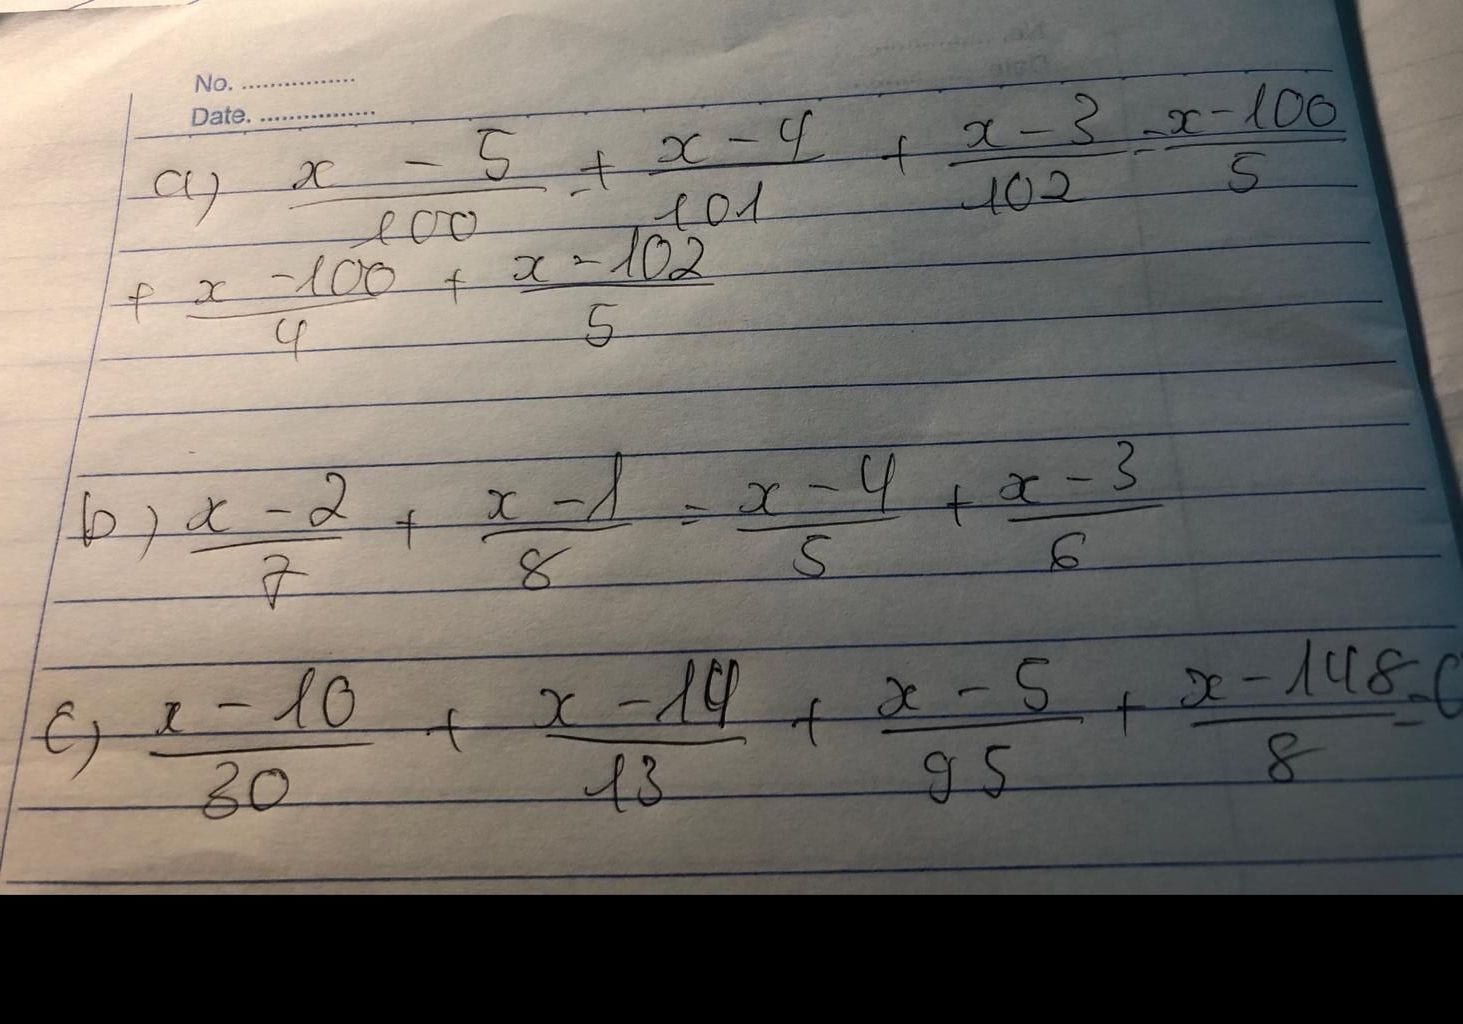 No. ................
Date. .................
a) x - 5 / 100 + x - 4 / 101 + x - 3 / 102 = x - 100 / 5
+ x - 100 / 4 + x - 102 / 5
b) x - 2 / 7 + x - 1 / 8 = x - 4 / 5 + x - 3 / 6
c) x - 10 / 30 + x - 14 / 13 + x - 5 / 95 + x - 148 / 8 =